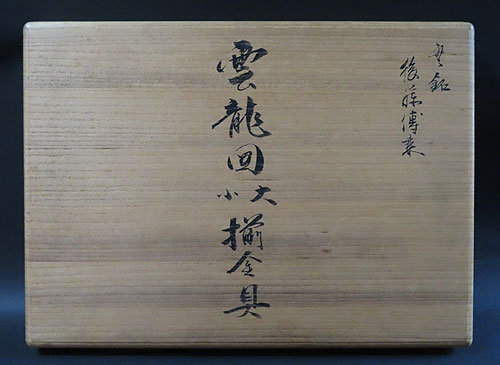 無銘
後藤傳乗
雲龍図大小揃金具